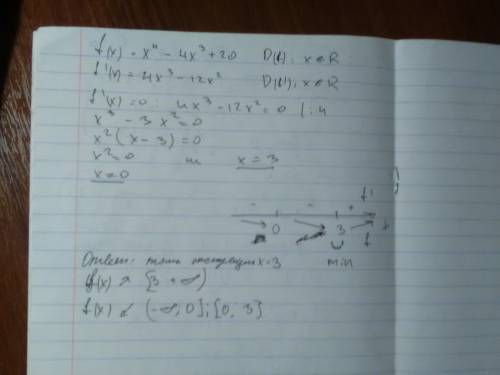 f(x) = x⁴ - 4x³ + 20 D(f): x ∈ R
f'(x) = 4x³ - 12x² D(f'): x ∈ R
f'(x) = 0 : 4x³ - 12x² = 0 | : 4
x³ - 3x² = 0
x² (x - 3) = 0
x² = 0 x = 3
x = 0
- - + f'
0 3 f x
min
Ответ: точка экстремума x=3
f(x) ↗ [3 + ∞)
f(x) ↙ (-∞; 0] ; [0, 3]